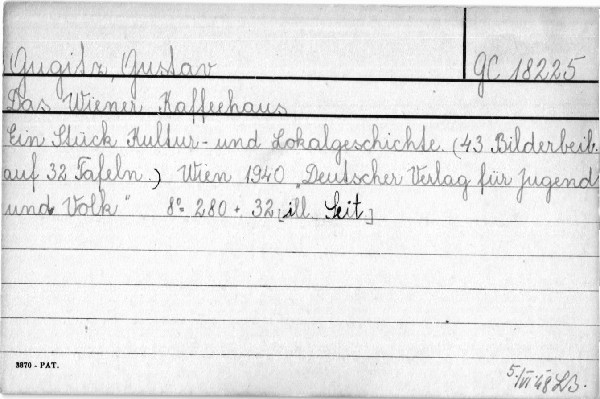 Gugitz, Gustav
GC 18225
Das Wiener Kaffeehaus
Ein Stück Kultur- und Lokalgeschichte. (43 Bilderbeil.
auf 32 Tafeln.) Wien 1940 "Deutscher Verlag für Jugend
und Volk" 8° 280 + 32 [ill. Seit.]
3870 - PAT.
5./VI.48 LB.